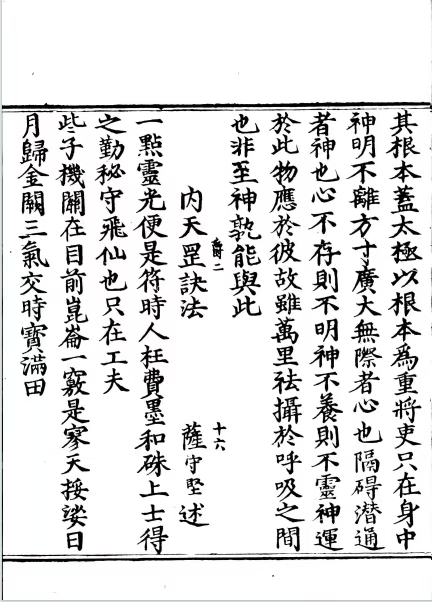 其根本蓋太極以根本為重將吏只在身中
神明不離方寸廣大無際者心也隔碍潜通
者神也心不存則不明神不養則不靈神運
於此物應於彼故雖萬里祛攝於呼吸之間
也非至神孰能與此
爵二 十六
内天罡訣法 薩守堅述
一點靈光便是符時人枉費墨和硃上士得
之勤秘守飛仙也只在工夫
些子機關在目前崑崙一竅是寥天挼娑日
月歸金闕三氣交時寶滿田